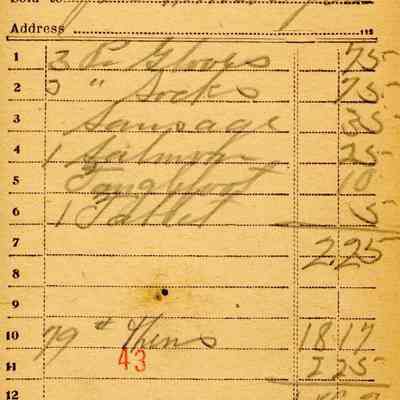 Address
1 3 Pr Gloves 75
2 3 " Socks 75
3 Sausage 35
4 1 Salmon 25
5 10
6 1 Tablet 5
7 2.25
8
9
10 79 # Hens 18 17
11 2 25
43
12